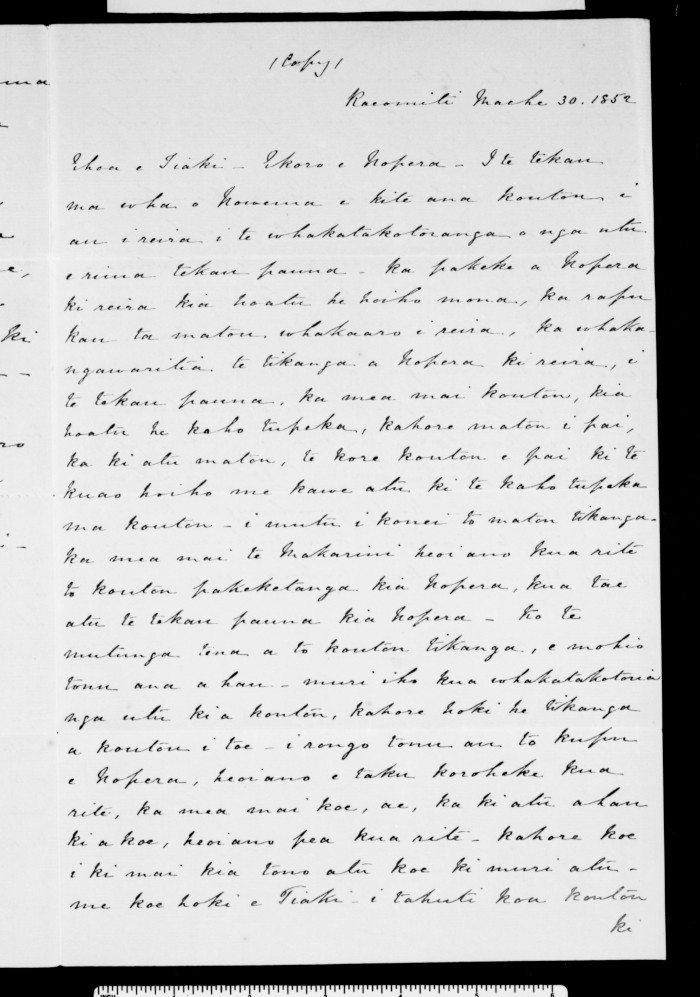 (Copy)
Kaeomiti Maehe 30. 1852
Ehoa e Tiaki - Ekoro e Hopera - I te tekau
ma wha o Nowema e kite ana koutou i
au i reira i te whakatakotoranga o nga utu
e rima tekau pauna - ka pakeke a Hopera
ki reira kia hoatu he hoiho mona, ka rapu
kau ta matou whakaaro i reira, ka whaka-
ngawaritia te tikanga a Hopera ki reira, i
te tekau pauna. ka mea mai koutou, kia
hoatu he kaho tupeka, kahore matou i pai,
ka ki atu matou, te kore koutou e pai ki te
kuao hoiho me kawe atu ki te kaho tupeka
ma koutou - i mutu i konei to matou tikanga.
ka mea mai te Makarini heoiano kua rite
to koutou paheketanga kia Hopera, kua tae
atu te tekau pauna kia Hopera - Ko te
mutunga tena a to koutou tikanga, e mohio
tonu ana a hau - muri iho kua whakatakotoria
nga utu ki a koutou, kahore hoki he tikanga
a koutou i toe - i rongo tonu au to kupu
e Hopera, heoiano e taku koroheke kua
rite, ka mea mai koe, ae, ka ki atu ahau
ki a koe, heoiano pea kua rite - kahore koe
i ki mai kia tono atu koe ki muri atu -
me koe hoki e Tiaki - i tahuti koa koutou
ki
ki
ro